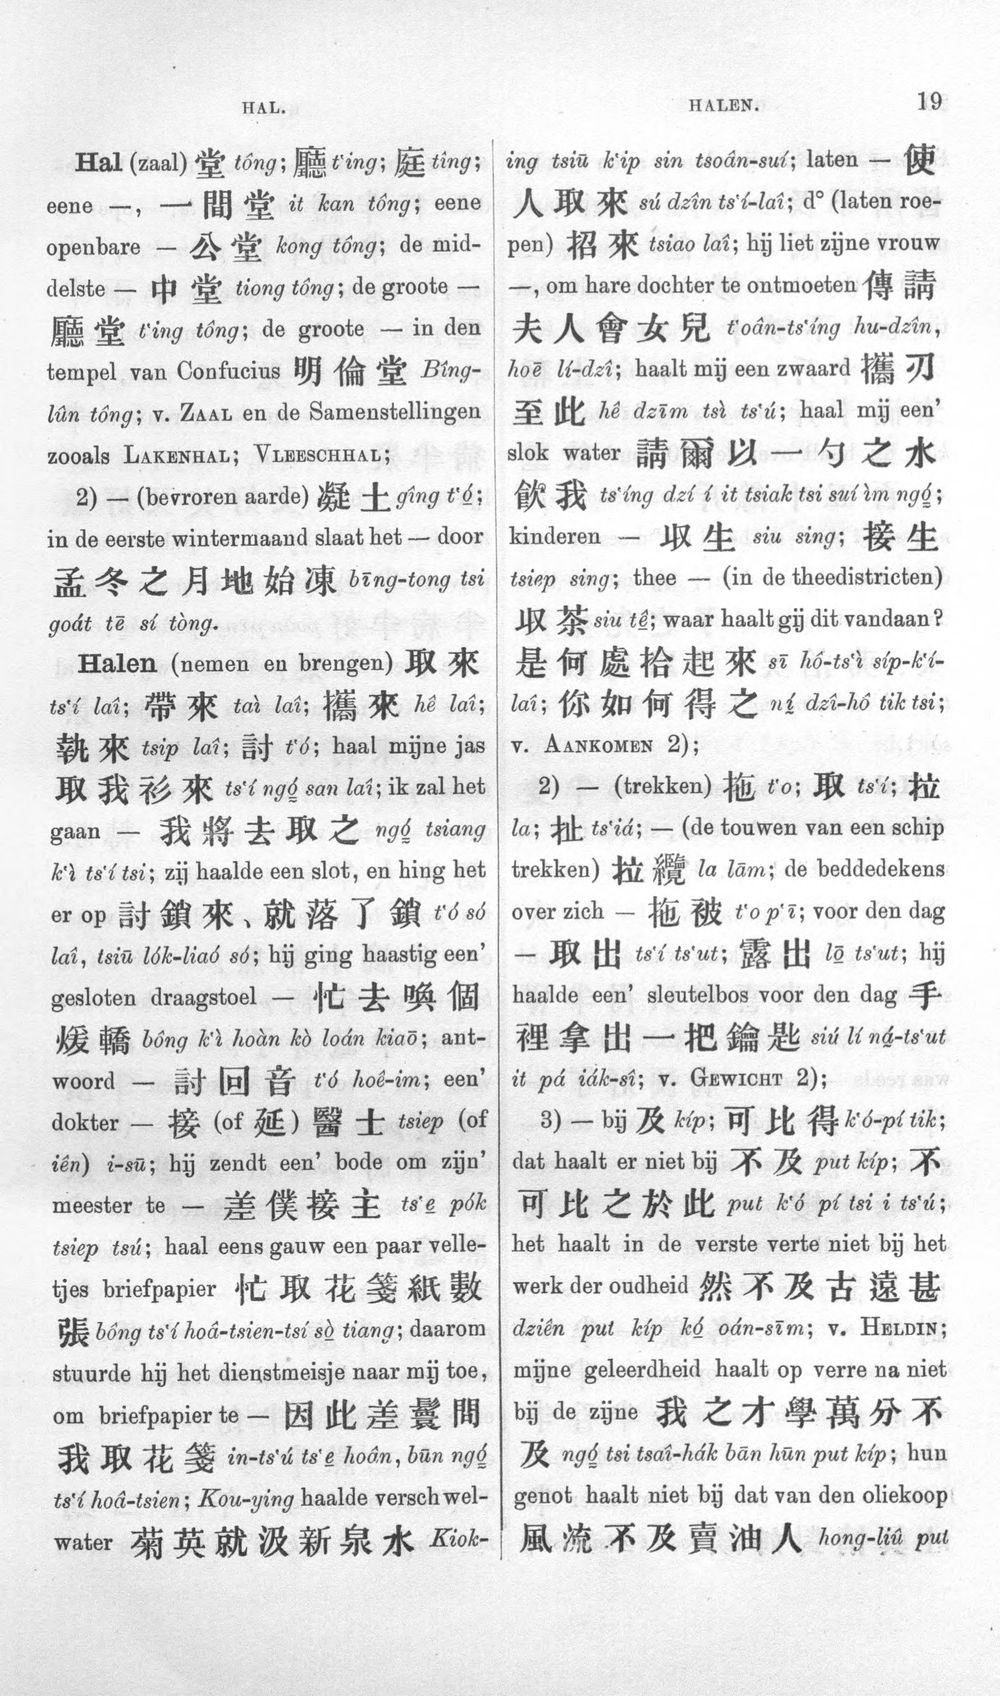 HAL.
HALEN.
19
Hal (zaal) 堂 tông; 廳 t‘ing; 庭 tîng;
eene —, 一間堂 it kan tông; eene
openbare — 公堂 kong tông; de mid-
delste — 中堂 tiong tông; de groote —
廳堂 t‘ing tông; de groote — in den
tempel van Confucius 明倫堂 Bîng-
lûn tông; v. ZAAL en de Samenstellingen
zooals LAKENHAL; VLEESCHHAL;
2) — (bevroren aarde) 凝土 gîng t‘ó̤;
in de eerste wintermaand slaat het — door
孟冬之月地始凍 bīng-tong tsi
goát tē sí tòng.
Halen (nemen en brengen) 取來
ts‘í laî; 帶來 taì laî; 攜來 hê laî;
執來 tsip laî; 討 t‘ó; haal mijne jas
取我衫來 ts‘í ngó̤ san laî; ik zal het
gaan — 我將去取之 ngó̤ tsiang
k‘ì ts‘í tsi; zij haalde een slot, en hing het
er op 討鎖來、就落了鎖 t‘ó só
laî, tsiū lók-liaó só; hij ging haastig een’
gesloten draagstoel — 忙去喚個
煖轎 bông k‘ì hoàn kò loán kiaō; ant-
woord — 討回音 t‘ó hoê-im; een’
dokter — 接 (of 延) 醫士 tsiep (of
iên) i-sū; hij zendt een’ bode om zijn’
meester te — 差僕接主 ts‘e̤ pók
tsiep tsú; haal eens gauw een paar velle-
tjes briefpapier 忙取花箋紙數
張 bông ts‘í hoâ-tsien-tsí sò̤ tiang; daarom
stuurde hij het dienstmeisje naar mij toe,
om briefpapier te — 因此差鬟問
我取花箋 in-ts‘ú ts‘e̤ hoân, būn ngó̤
ts‘í hoâ-tsien; Kou-ying haalde versch wel-
water 菊英就汲新泉水 Kiok-
ing tsiū k‘ip sin tsoân-suí; laten — 使
人取來 sú dzîn ts‘í-laî; d° (laten roe-
pen) 招來 tsiao laî; hij liet zijne vrouw
—, om hare dochter te ontmoeten 傳請
夫人會女兒 t‘oân-ts‘íng hu-dzîn,
hoē lí-dzî; haalt mij een zwaard 攜刃
至此 hê dzīm tsì ts‘ú; haal mij een’
slok water 請爾以一勺之水
飮我 ts‘íng dzí í it tsiak tsi suí ìm ngó̤;
kinderen — 収生 siu sing; 接生
tsiep sing; thee — (in de theedistricten)
収茶 siu tê̤; waar haalt gij dit vandaan?
是何處拾起來 sī hô-ts‘ì síp-k‘í-
laî; 你如何得之 ní̤ dzî-hô tik tsi;
v. AANKOMEN 2);
2) — (trekken) 拖 t‘o; 取 ts‘í; 拉
la; 扯 ts‘iá; — (de touwen van een schip
trekken) 拉纜 la lām; de beddedekens
over zich — 拖被 t‘o p‘ī; voor den dag
— 取出 ts‘í ts‘ut; 露出 lō̤ ts‘ut; hij
haalde een’ sleutelbos voor den dag 手
裡拿出一把鑰匙 siú lí ná̤-ts‘ut
it pá iák-sî; v. GEWICHT 2);
3) — bij 及 kíp; 可比得 k‘ó-pí tik;
dat haalt er niet bij 不及 put kíp; 不
可比之於此 put k‘ó pí tsi i ts‘ú;
het haalt in de verste verte niet bij het
werk der oudheid 然不及古遠甚
dziên put kíp kó̤ oán-sīm; v. HELDIN;
mijne geleerdheid haalt op verre na niet
bij de zijne 我之才學萬分不
及 ngó̤ tsi tsaî-hák bān hūn put kíp; hun
genot haalt niet bij dat van den oliekoop
風流不及賣油人 hong-liû put